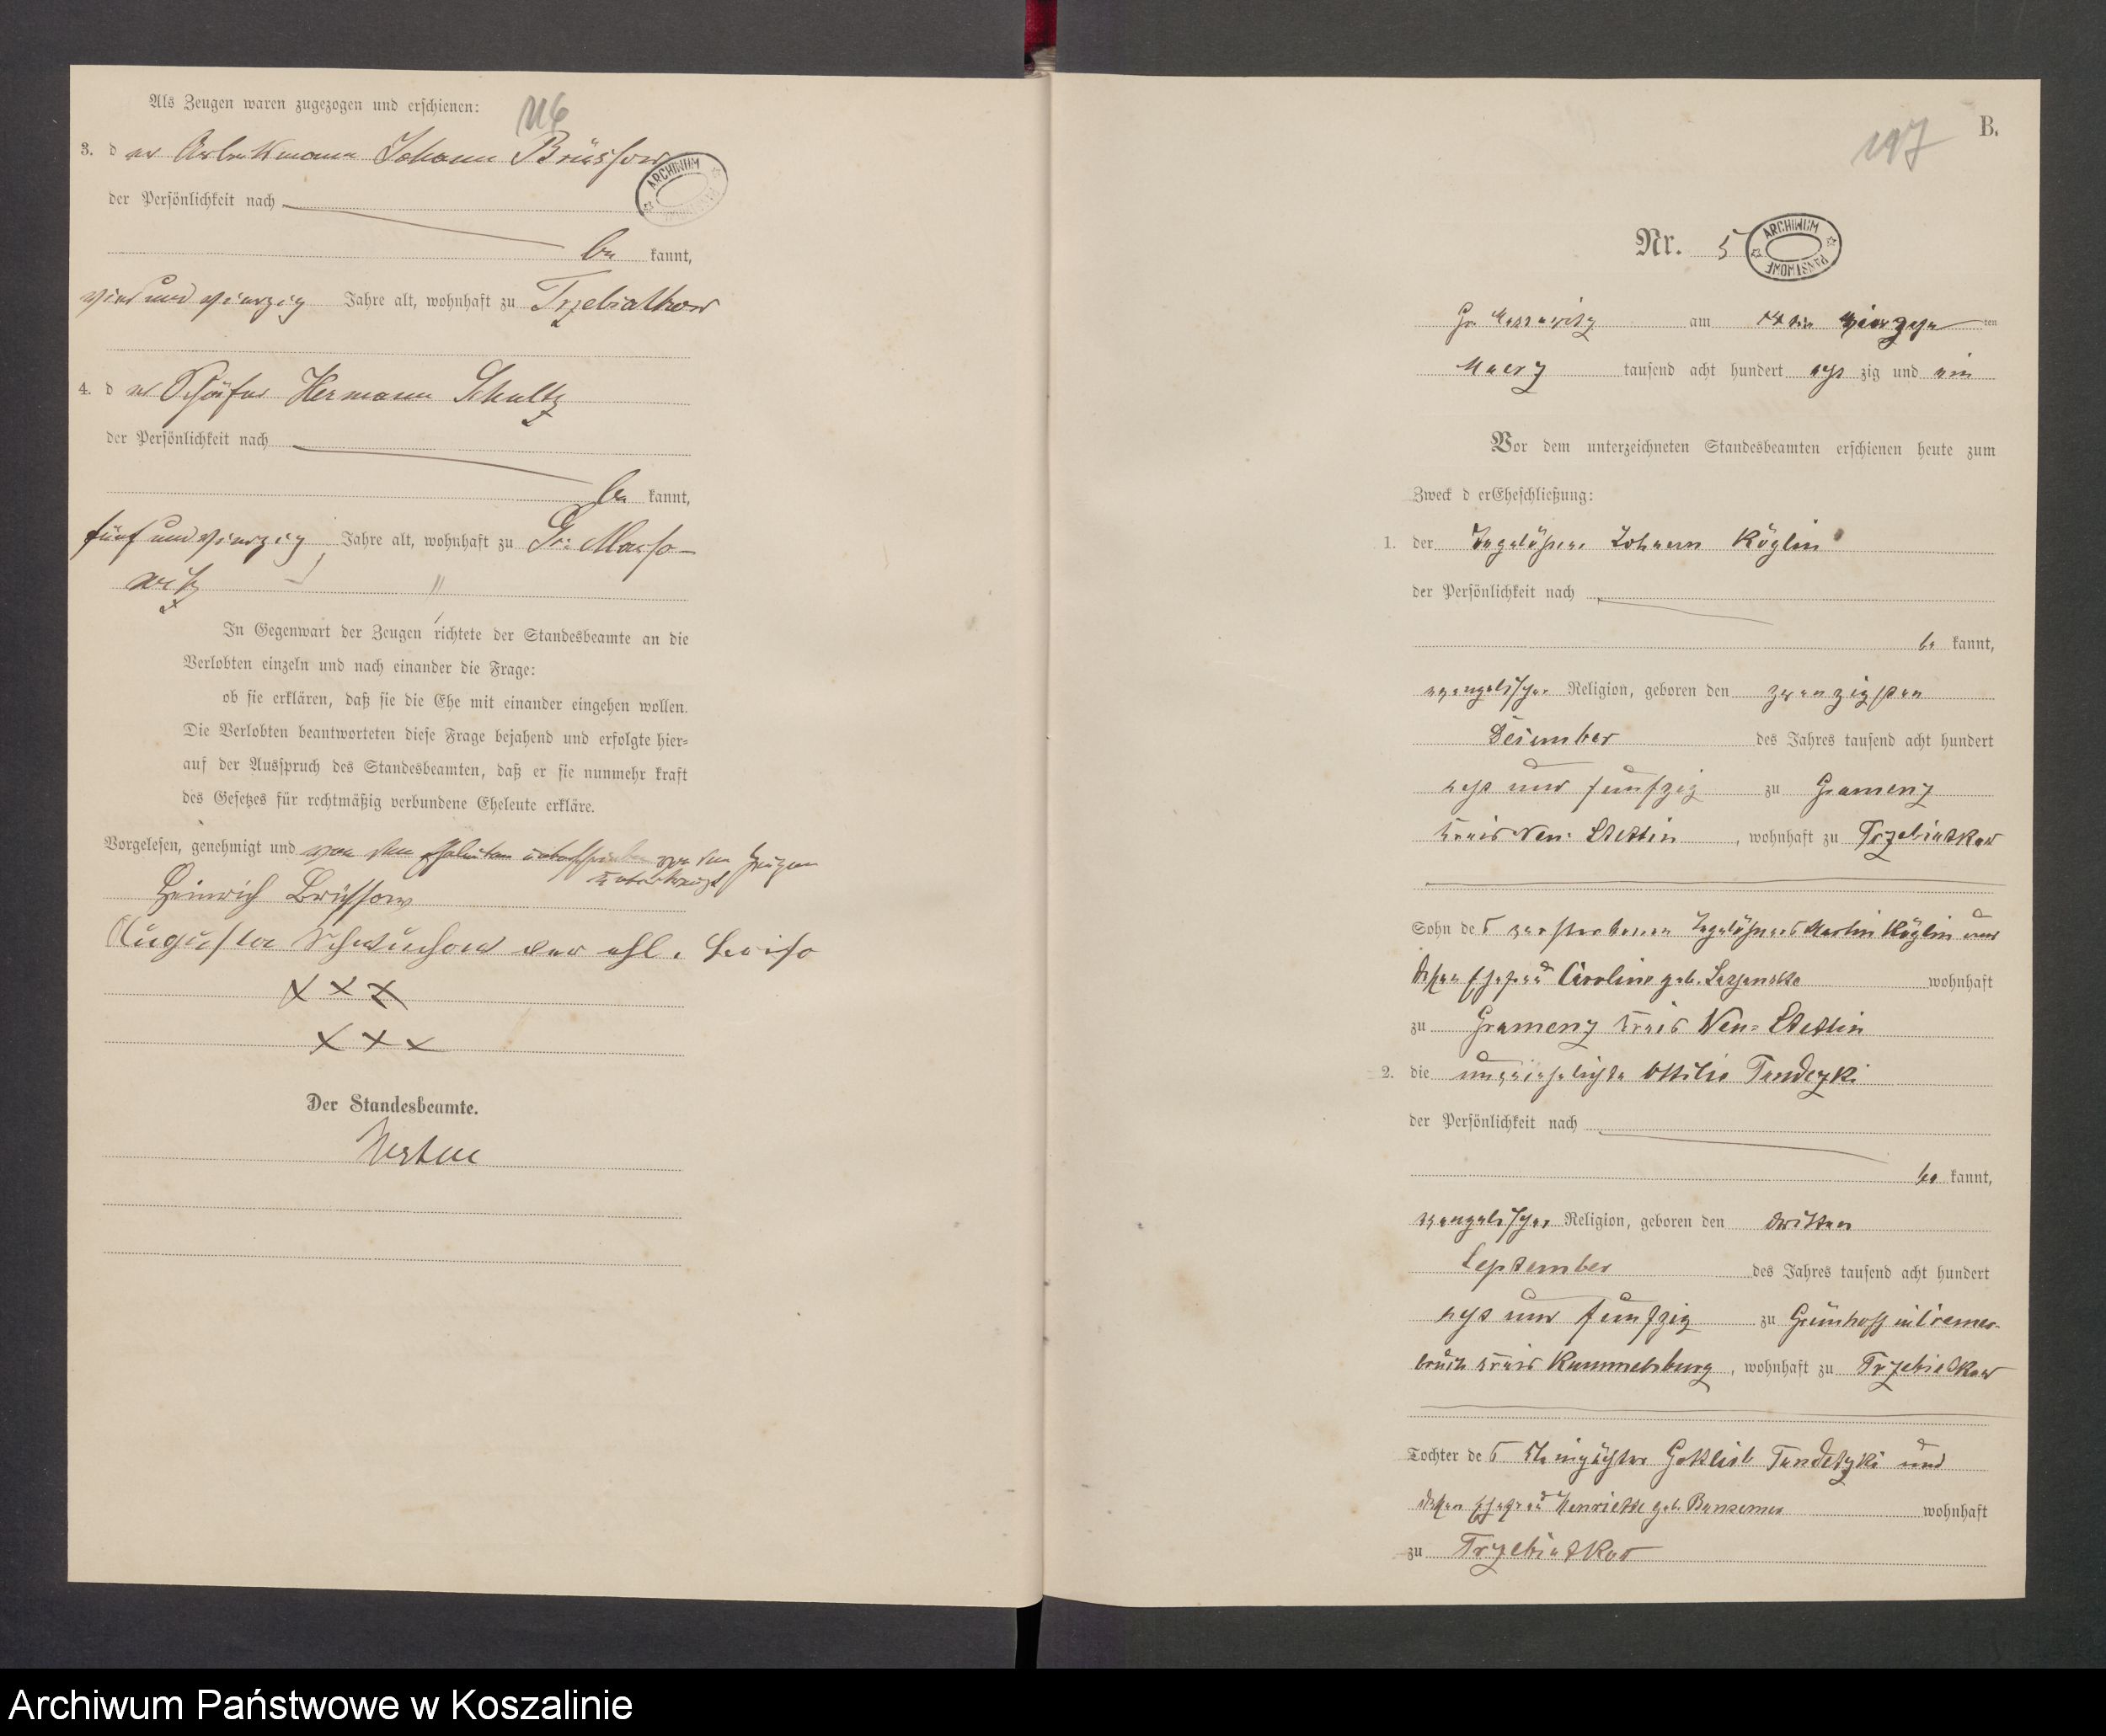 Als Zeugen waren zugezogen und erschienen:
116
3. der Arbeitsmann Johann Brüssow
ARCHIWUM
der Persönlichkeit nach
be kannt,
vier und vierzig Jahre alt, wohnhaft zu Trzebiatkow
4. der Schäfer Hermann Schultz
der Persönlichkeit nach
be kannt,
fünf und vierzig, Jahre alt, wohnhaft zu Gr: Masso-
witz
In Gegenwart der Zeugen richtete der Standesbeamte an die
Verlobten einzeln und nach einander die Frage:
ob sie erklären, daß sie die Ehe mit einander eingehen wollen.
Die Verlobten beantworteten diese Frage bejahend und erfolgte hier=
auf der Ausspruch des Standesbeamten, daß er sie nunmehr kraft
des Gesetzes für rechtmäßig verbundene Eheleute erkläre.
Vorgelesen, genehmigt und von den Eheleuten unterschrieben von den Zeugen
unterkreuzt
Heinrich Brüssow
Augusta Schwuchow
XXX
XXX
Der Standesbeamte.
B.
197
Nr. 5
ARCHIWUM PAŃSTWOWE
Gr Massowitz am 14ten vierzehn ten
Maerz tausend acht hundert acht zig und ein
Vor dem unterzeichneten Standesbeamten erschienen heute zum
Zweck d erEheschließung:
1. der Tagelöhner Johann Röglin
der Persönlichkeit nach
be kannt,
evangelischer Religion, geboren den zwanzigsten
Dezember des Jahres tausend acht hundert
acht und fünfzig zu Gramenz
Kreis Neu= Stettin, wohnhaft zu Trzebiatkow
Sohn des verstorbenen Tagelöhners Martin Röglin und
dessen Ehefrau Caroline geb. wohnhaft
zu Gramenz Kreis Neu= Stettin
2. die unverehelichte Ottilie Tandezki
der Persönlichkeit nach
be kannt,
evangelischer Religion, geboren den dritten
September des Jahres tausend acht hundert
acht und fünfzig zu Grünhoff in Cremer-
bruch Kreis Rummelsburg, wohnhaft zu Trzebiatkow
Tochter des Eheleute Gottlieb Tandetzki und
dessen Ehefrau Henriette geb. Bansemer wohnhaft
zu Trzebiatkow
Archiwum Państwowe w Koszalinie